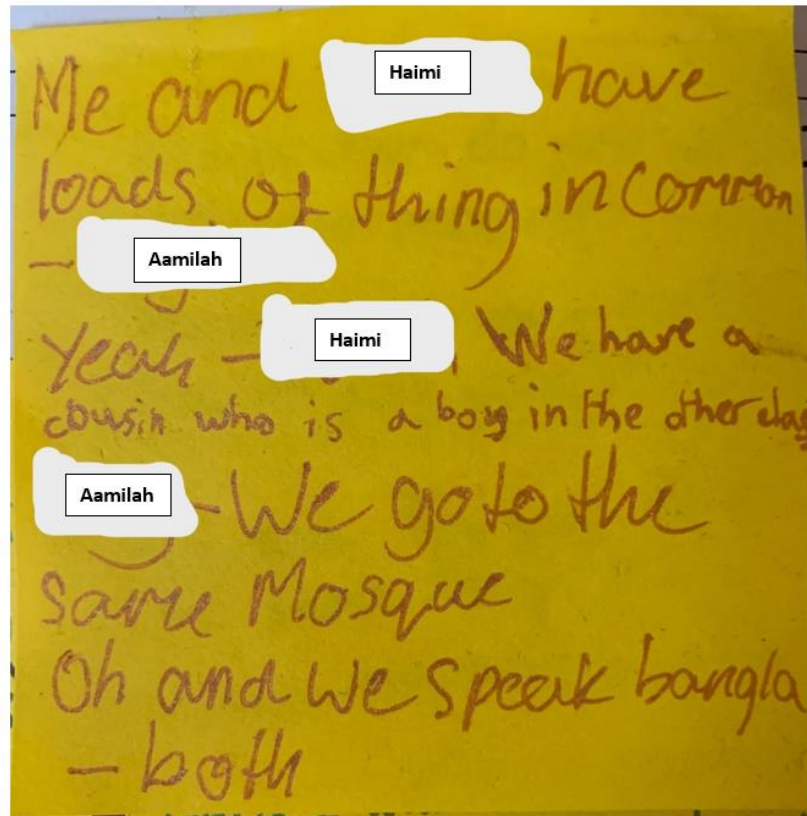 Me and Haimi have
loads of thing in common
- Aamilah
Yeah - Haimi We have a
cousin who is a boy in the other class
Aamilah - We go to the
same Mosque
Oh and we speak bangla
- both